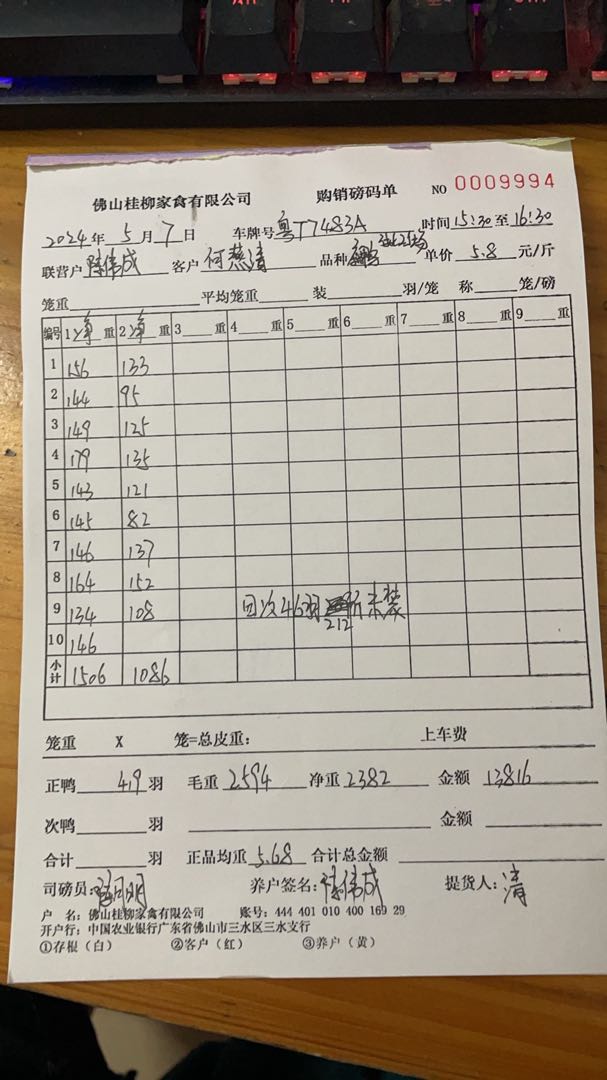 佛山桂柳家禽有限公司 购销磅码单 NO 0009994
2024年5月7日 车牌号 粤T7483A 时间15:30至16:30
联营户 陈伟成 客户 何燕清 品种 单价 5.8 元/斤
笼重 平均笼重 装 羽/笼 称 笼/磅
编号 1 净 重 2 净 重 3 重 4 重 5 重 6 重 7 重 8 重 9 重
1 156 133
2 144 95
3 149 125
4 179 135
5 143 121
6 145 82
7 146 137
8 164 152
9 134 108 回次46羽 212 斤未装
10 146
小计 1506 1086
笼重 X 笼=总皮重: 上车费
正鸭 419 羽 毛重 2594 净重 2382 金额 13816
次鸭 羽 金额
合计 羽 正品均重 5.68 合计总金额
司磅员: 养户签名: 陈伟成 提货人: 清
户 名: 佛山桂柳家禽有限公司 账号: 444 401 010 400 169 29
开户行: 中国农业银行广东省佛山市三水区三水支行
①存根(白) ②客户(红) ③养户(黄)